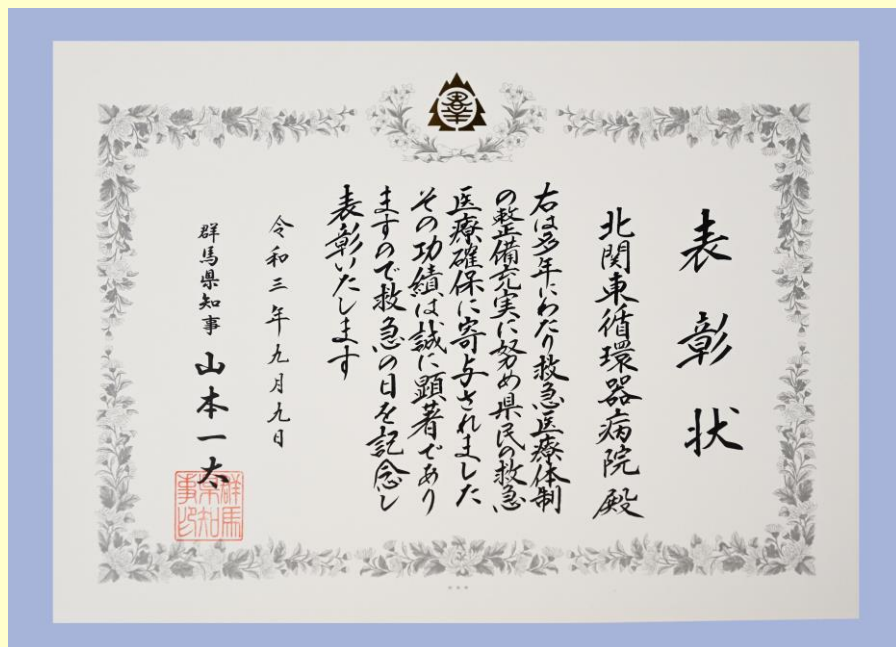 表彰状
北関東循環器病院 殿
右は多年にわたり救急医療体制
の整備充実に努め県民の救急
医療確保に寄与されました
その功績は誠に顕著であり
ますので救急の日を記念し
表彰いたします
令和三年九月九日
群馬県知事 山本一太
群馬
県知
事印